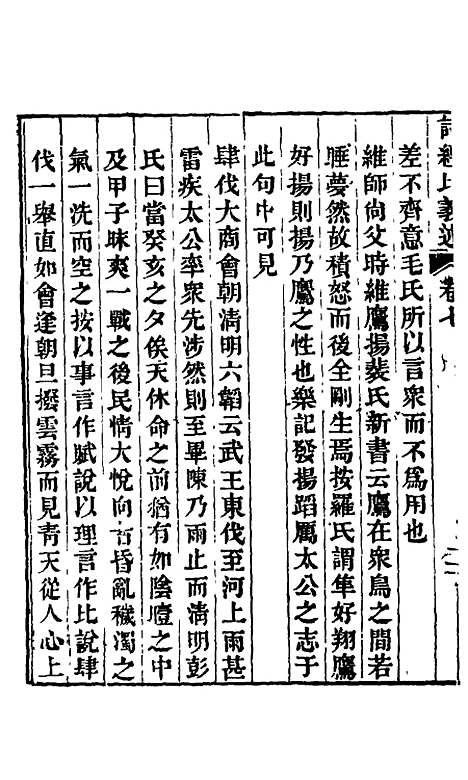 差不齊意毛氏所以言衆而不爲用也
維師尚父時維鷹揚裴氏新書云鷹在衆鳥之間若
睡夢然故積怒而後全剛生焉按羅氏謂隼好翔鷹
好揚則揚乃鷹之性也樂記發揚蹈厲太公之志于
此句中可見
肆伐大商會朝淸明六韜云武王東伐至河上雨甚
雷疾太公率衆先涉然則至畢陳乃雨止而淸明彭
氏曰當癸亥之夕俟天休命之前猶有如陰曀之中
及甲子昧爽一戰之後民情大悅向昏亂穢濁之
氣一洗而空之按以事言作賦說以理言作比說肆
伐一舉直如會逢朝旦撥雲霧而見靑天從人心上